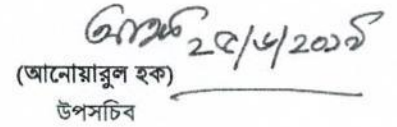 ২৫/৬/২০১৯
(আনোয়ারুল হক)
উপসচিব